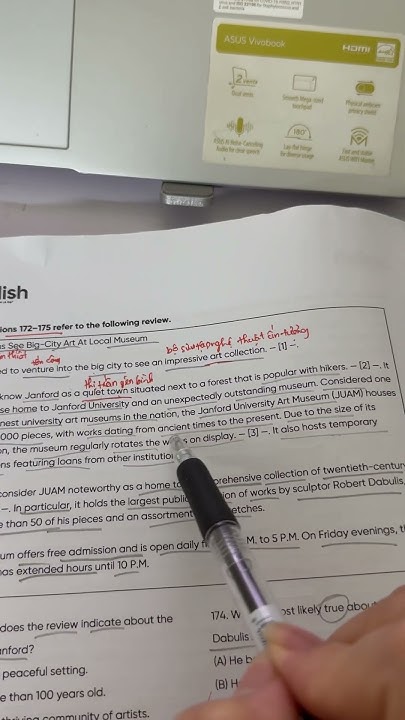 ASUS Vivobook
HDMI
180°
lish
ions 172–175 refer to the following review.
ns See Big-City Art At Local Museum
bộ sưu tập nghệ thuật ấn tượng
ed to venture into the big city to see an impressive art collection. – [1] –.
thị trấn yên bình
know Janford as a quiet town situated next to a forest that is popular with hikers. – [2] –. It
se home to Janford University and an unexpectedly outstanding museum. Considered one
nest university art museums in the nation, the Janford University Art Museum (JUAM) houses
000 pieces, with works dating from ancient times to the present. Due to the size of its
n, the museum regularly rotates the w s on display. – [3] –. It also hosts temporary
ns featuring loans from other institutio
onsider JUAM noteworthy as a home to prehensive collection of twentieth-centur
–. In particular, it holds the largest public ion of works by sculptor Robert Dabulis,
e than 50 of his pieces and an assortment etches.
um offers free admission and is open daily f M. to 5 P.M. On Friday evenings, t
as extended hours until 10 P.M.
does the review indicate about the
anford?
peaceful setting.
e than 100 years old.
community of artists.
174. W ost likely true abou
Dabulis
(A) He b
(B) H